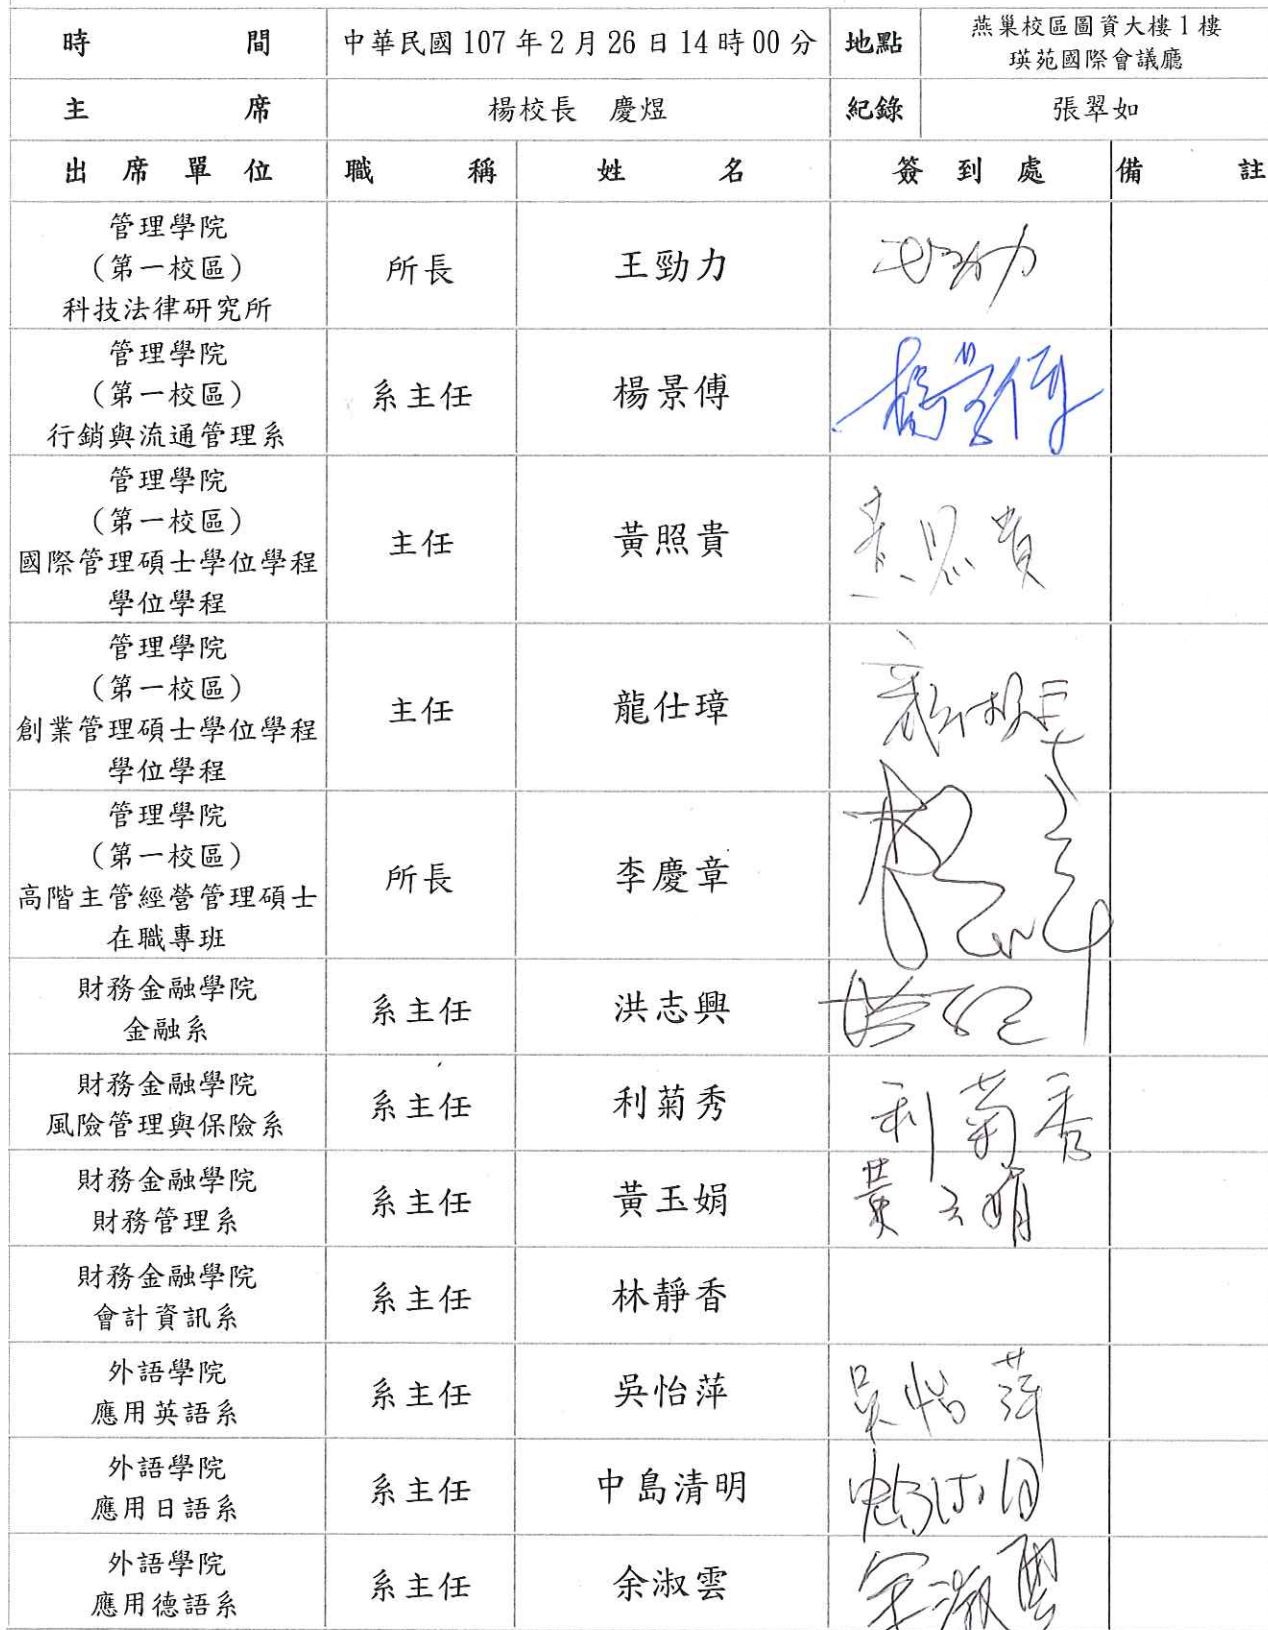 時間 中華民國 107 年 2 月 26 日 14 時 00 分 地點 燕巢校區圖資大樓 1 樓
瑛苑國際會議廳
主席 楊校長 慶煜 紀錄 張翠如
出席單位 職稱 姓名 簽到處 備註
管理學院
（第一校區）
科技法律研究所
所長 王勁力 王勁力
管理學院
（第一校區）
行銷與流通管理系
系主任 楊景傅 楊景傅
管理學院
（第一校區）
國際管理碩士學位學程
學位學程
主任 黃照貴 黃照貴
管理學院
（第一校區）
創業管理碩士學位學程
學位學程
主任 龍仕璋
管理學院
（第一校區）
高階主管經營管理碩士
在職專班
所長 李慶章
財務金融學院
金融系
系主任 洪志興
財務金融學院
風險管理與保險系
系主任 利菊秀 利菊秀
財務金融學院
財務管理系
系主任 黃玉娟 黃玉娟
財務金融學院
會計資訊系
系主任 林靜香
外語學院
應用英語系
系主任 吳怡萍 吳怡萍
外語學院
應用日語系
系主任 中島清明
外語學院
應用德語系
系主任 余淑雲 余淑雲